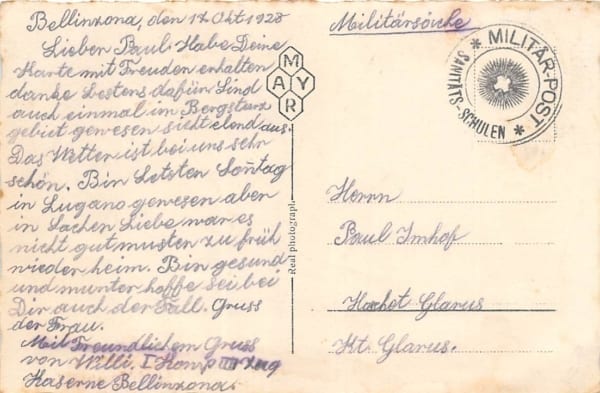 Bellinzona, den 17 Okt 1928
Lieber Paul. Habe Deine
Karte mit Freuden erhalten
danke bestens dafür Sind
auch einmal im Bergsturz
gebiet gewesen sieht elend aus.
Das Wetter ist bei uns sehr
schön. Bin letsten Sontag
in Lugano gewesen aber
in Sachen Liebe war es
nicht gut musten zu früh
wieder heim. Bin gesund
und munter hoffe sei bei
Dir auch der Fall. Gruss
der Frau.
Mit Freundlichem Gruss
von Willi. I Komp III Zug
Kaserne Bellinzona.
MAYR
Real photograph.
Militärsache
* MILITÄR-POST *
SANITÄTS-SCHULEN
Herrn
Paul Imhof
Glarus
Kt. Glarus.